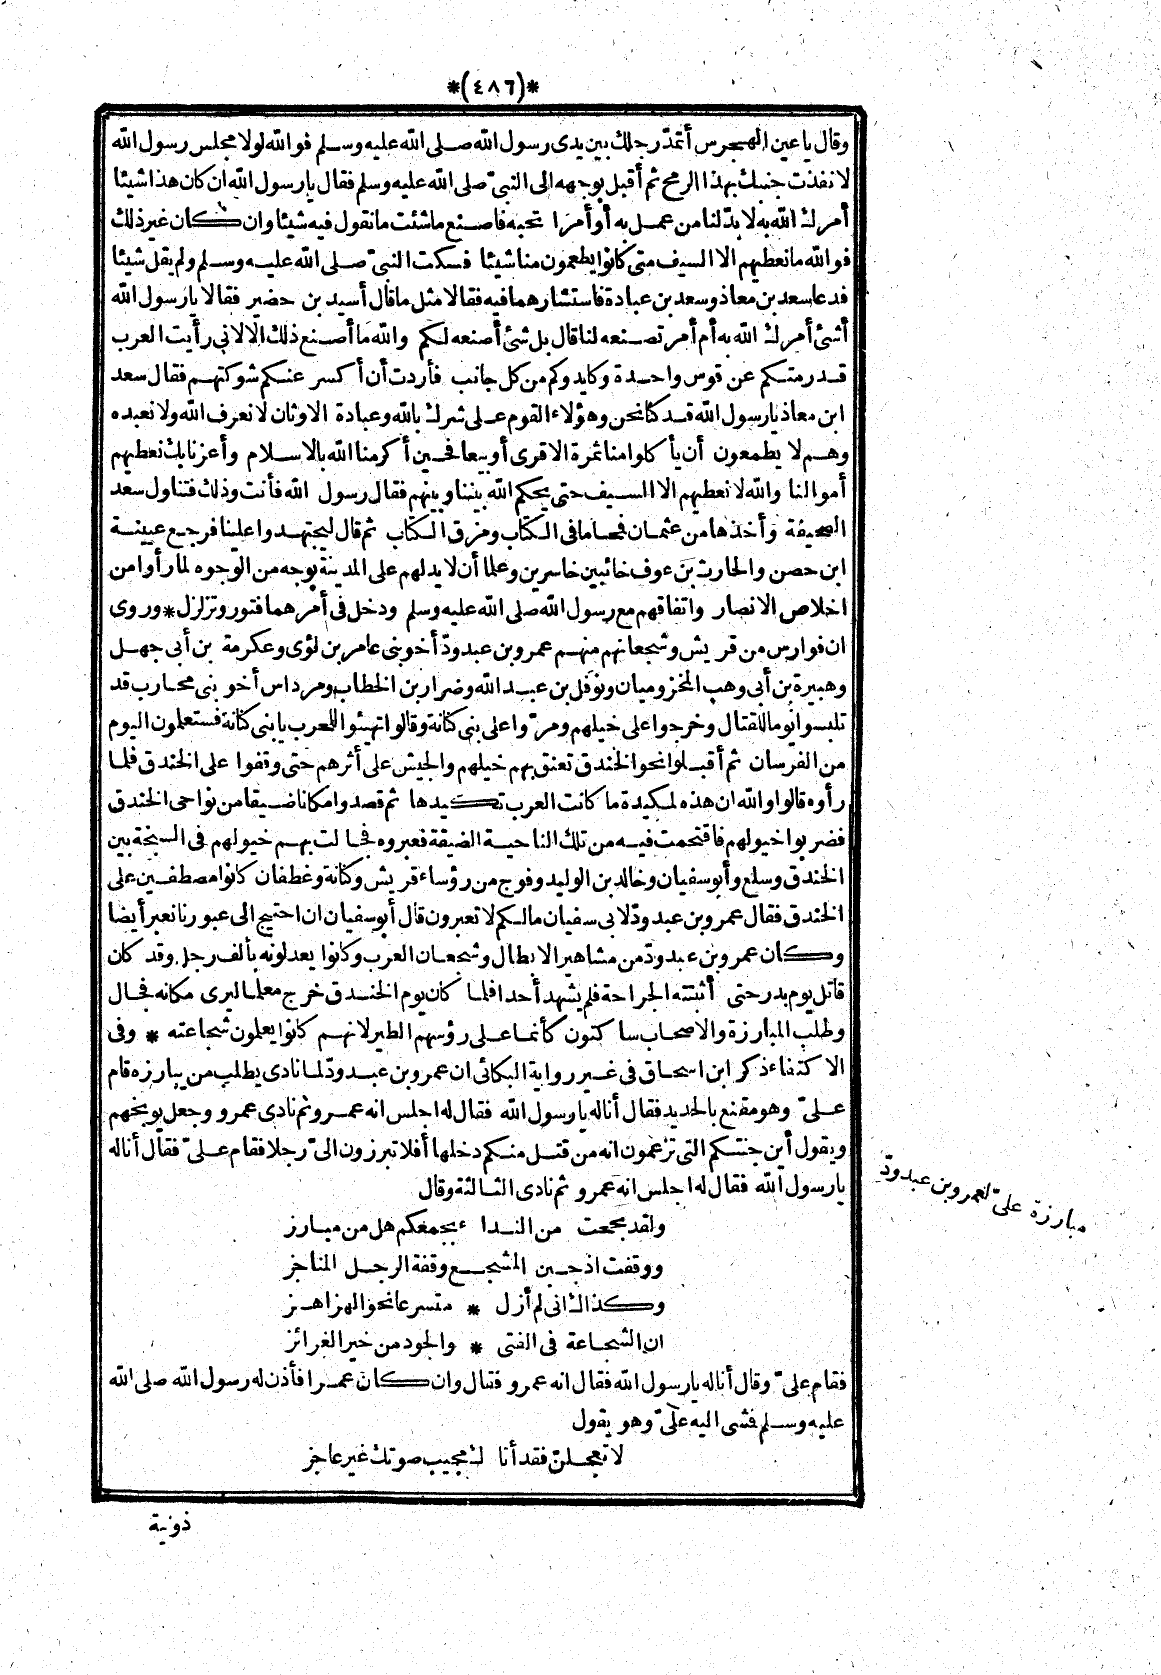 *(٤٨٦)*
وقال ياعين الهجرس أتمدّ رجلك بين يدى رسول الله صلى الله عليه وسلم فو الله لولا مجلس رسول الله
لانفذت جنبك بهذا الرمح ثم أقبل بوجهه الى النبىّ صلى الله عليه وسلم فقال يارسول الله ان كان هذا شيئا
أمرك الله به لا بدّ لنا من عمل به أو أمرا تحبه فاصنع ماشئت مانقول فيه شيئا وان كان غير ذلك
فو الله مانعطيهم الا السيف متى كانوا يطعمون منا شيئا فسكت النبىّ صلى الله عليه وسلم ولم يقل شيئا
فدعا سعد بن معاذ وسعد بن عبادة فاستشارهما فيه فقالا مثل ماقال أسيد بن حضير فقالا يارسول الله
أشئ أمرك الله به أم أمر تصنعه لنا قال بل شئ أصنعه لكم والله ما أصنع ذلك الا لانى رأيت العرب
قد رمتكم عن قوس واحدة وكايدوكم من كل جانب فأردت أن أكسر عنكم شوكتهم فقال سعد
ابن معاذ يارسول الله قد كنا نحن وهؤلاء القوم على شرك بالله وعبادة الاوثان لانعرف الله ولا نعبده
وهم لا يطمعون أن يأكلوا منا ثمرة الا قرى أو بيعا فحين أكرمنا الله بالاسلام وأعزنا بك نعطيهم
أموالنا والله لا نعطيهم الا السيف حتى يحكم الله بيننا وبينهم فقال رسول الله فأنت وذلك فتناول سعد
الصحيفة وأخذها من عثمان فمحا ما فى الكتاب ومزق الكتاب ثم قال ليجتهدوا علينا فرجع عيينة
ابن حصن والحارث بن عوف خائبين خاسرين وعلما أن لا يدلهم على المدينة بوجه من الوجوه لما رأوا من
اخلاص الانصار واتفاقهم مع رسول الله صلى الله عليه وسلم ودخل فى أمرهما فتور وتزلزل * وروى
ان فوارس من قريش وشجعانهم منهم عمرو بن عبدودّ أخو بنى عامر بن لؤى وعكرمة بن أبى جهل
وهبيرة بن أبى وهب المخزوميان ونوفل بن عبد الله وضرار بن الخطاب ومرداس أخو بنى محارب قد
تلبسوا يوما للقتال وخرجوا على خيلهم ومرّوا على بنى كنانة وقالوا تهيئوا للحرب يا بنى كنانة فستعلمون اليوم
من الفرسان ثم أقبلوا نحو الخندق تعنق بهم خيلهم والجيش على أثرهم حتى وقفوا على الخندق فلما
رأوه قالوا والله ان هذه لمكيدة ما كانت العرب تكيدها ثم قصدوا مكانا ضيقا من نواحى الخندق
فضربوا خيولهم فاقتحمت فيه من تلك الناحية الضيقة فعبروه فجالت بهم خيولهم فى السبخة بين
الخندق وسلع وأبو سفيان وخالد بن الوليد وفوج من رؤساء قريش وكنانة وغطفان كانوا مصطفين على
الخندق فقال عمرو بن عبدودّ لابى سفيان مالكم لاتعبرون قال أبو سفيان ان احتيج الى عبورنا نعبر أيضا
وكان عمرو بن عبدودّ من مشاهير الابطال وشجعان العرب وكانوا يعدلونه بألف رجل وقد كان
قاتل يوم بدر حتى أثبتته الجراحة فلم يشهد أحدا فلما كان يوم الخندق خرج معلما ليرى مكانه فجال
وطلب المبارزة والاصحاب ساكتون كأنما على رؤسهم الطير لانهم كانوا يعلمون شجاعته * وفى
الاكتفاء ذكر ابن اسحاق فى غير رواية البكائى ان عمرو بن عبدودّ لما نادى يطلب من يبارزه قام
علىّ وهو مقنع بالحديد فقال أنا له يا رسول الله فقال له اجلس انه عمرو ثم نادى عمرو وجعل يوبخهم
ويقول أين جنتكم التى تزعمون انه من قتل منكم دخلها أفلا تبرزون الىّ رجلا فقام علىّ فقال أنا له
يارسول الله فقال له اجلس انه عمرو ثم نادى الثالثة وقال
ولقد بححت من الندا ء بجمعكم هل من مبارز
ووقفت اذ جبن المشجع وقفة الرجل المناجز
وكذاك انى لم أزل * متسرعا نحو الهزاهز
ان الشجاعة فى الفتى * والجود من خير الغرائز
فقام علىّ وقال أنا له يارسول الله فقال انه عمرو فقال وان كان عمرا فأذن له رسول الله صلى الله
عليه وسلم فمشى اليه علىّ وهو يقول
لا تعجلنّ فقد أتا ك مجيب صوتك غير عاجز
ذونية
مبارزة علىّ لعمرو بن عبدودّ